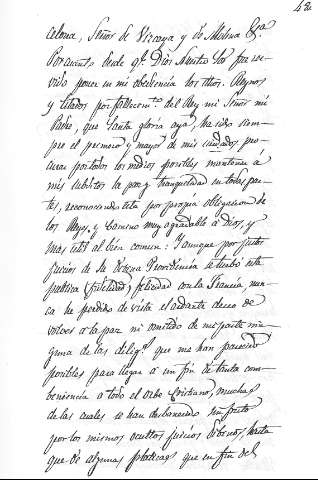 42
celona, Señor de Vizcaya y de Molina &ra
Por cuanto desde qe. Dios Nuestro Sor. fue ser-
vido poner en mi obediencia los dhos. Reynos
y Estados por fallecimto. del Rey mi Señor mi
Padre, que Santa gloria aya, ha sido siem-
pre el primero y mayor de mis cuidados, pro-
curar por todos los medios posibles mantener á
mis subditos la paz y tranquilidad en todas par-
tes, reconociendo esta por propia obligacion de
los Reyes, y Camino muy agradable á Dios, y
mas util al bien comun: Y aunque por justos
juicios de su Divina Providencia se turbó esta
publica felicidad con la Francia, nun-
ca he perdido de vista el ardiente deseo de
volver a la paz ni omitido de mi parte nin-
guna de las diligs. que me han parecido
posibles para llegar a un fin de tanta com-
beniencia a todo el orbe Cristiano, muchas
de las cuales se han desbanecido sin fruto
por los mismos ocultos juicios Divinos, hasta
que de algunas platicas que en fin del